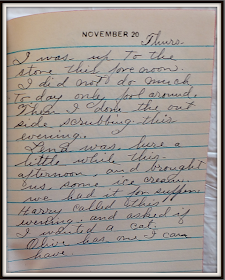 NOVEMBER 20
Thurs.
I was up to the
store this forenoon.
I did not do much
to day only fool around.
Then I done the out
side scrubbing this
evening.
was here a
little while this
afternoon, and brought
us some ice cream.
we had it for supper.
Harry called this
evening, and asked if
I wanted a cat.
Olive has one I can
have.